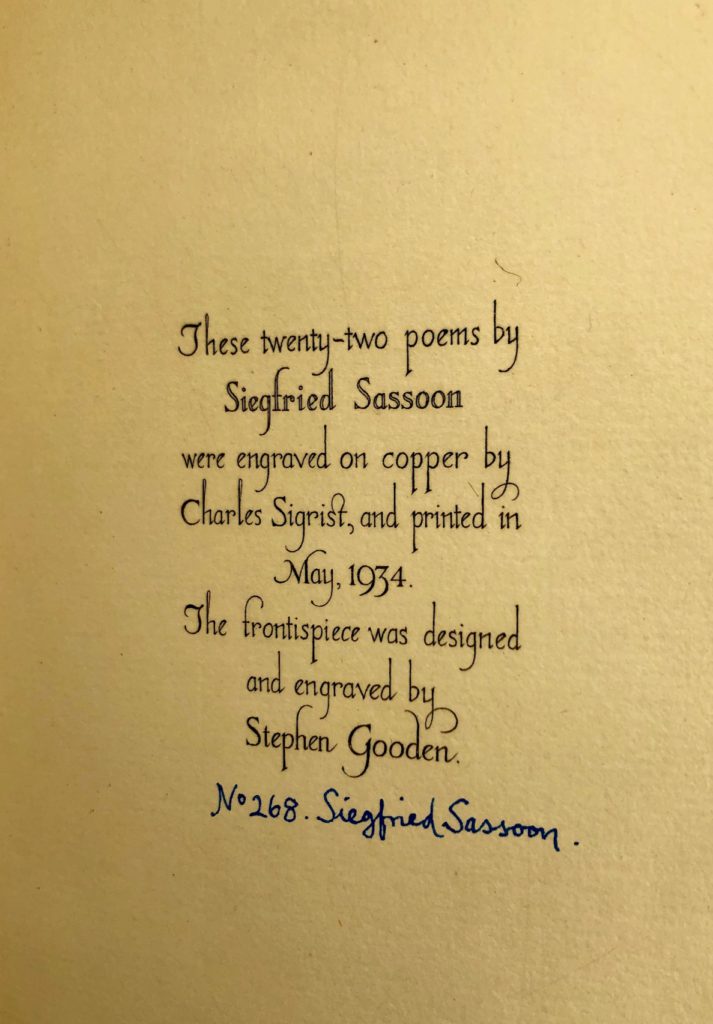 These twenty-two poems by
Siegfried Sassoon
were engraved on copper by
Charles Sigrist, and printed in
May, 1934.
The frontispiece was designed
and engraved by
Stephen Gooden.
No 268. Siegfried Sassoon.